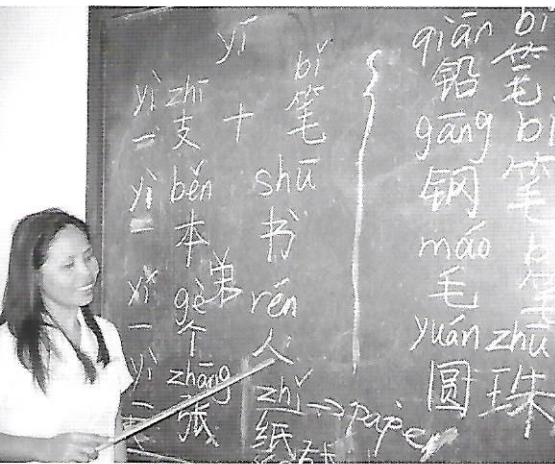 yí
yì zhī bǐ
一 支 + 笔
yì běn shū
一 本 书
弟
yí gè rén
一 个 人
yì zhāng zhǐ → paper
一 张 纸
qiān bǐ
铅 笔
gāng bǐ
钢 笔
máo b
毛 笔
yuán zhū
圆 珠